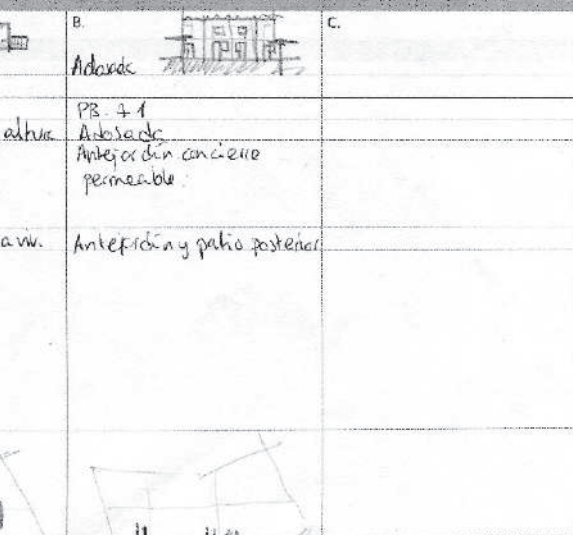 B.
C.
Adosada
PB. + 1
altura
Adosada
Antejardín con cierre
permeable.
a viv.
Antejardín y patio posterior